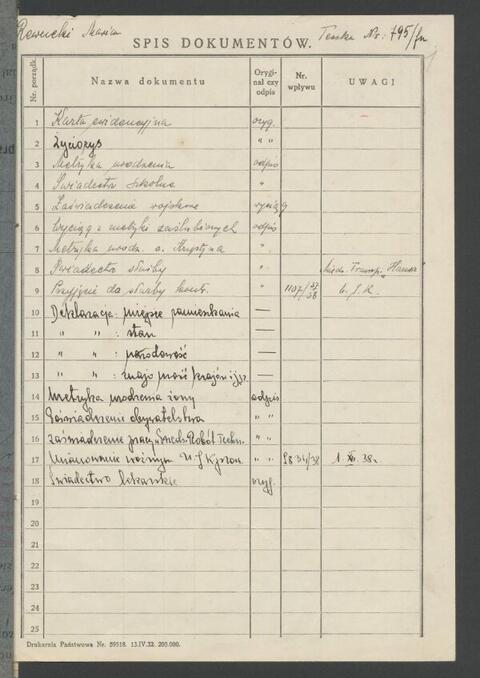 Marian Teczka Nr: 795/
SPIS DOKUMENTÓW.
Nr. porządk. Nazwa dokumentu Orygi- nał czy odpis Nr. wpływu UWAGI
1 Karta ewidencyjna oryg.
2 Życiorys " "
3 Metryka urodzenia odpis
4 Świadectw. szkolne "
5 Zaświadczenie wojskowe wyciąg
6 Wyciąg z metryki zaślubionych odpis
7 Metryka urodz. c. Krystyna "
8 Świadectw służby "
9 Przyjęcie do służby kontr. " 1107/37/38
10 Deklaracja: miejsce zamieszkania —
11 " " : stan —
12 " " : narodowość —
13 " " : —
14 Metryka urodzenia żony odpis
15 obywatelstwa " "
16 zaświadczenie pracy Robót Techn. " "
17 Mianowanie woźnym " " 9834/38 1. XI. 38r.
18 Świadectwo lekarskie oryg.
19
20
21
22
23
24
25
Drukarnia Państwowa Nr. 59518. 13.IV.32. 200.000.